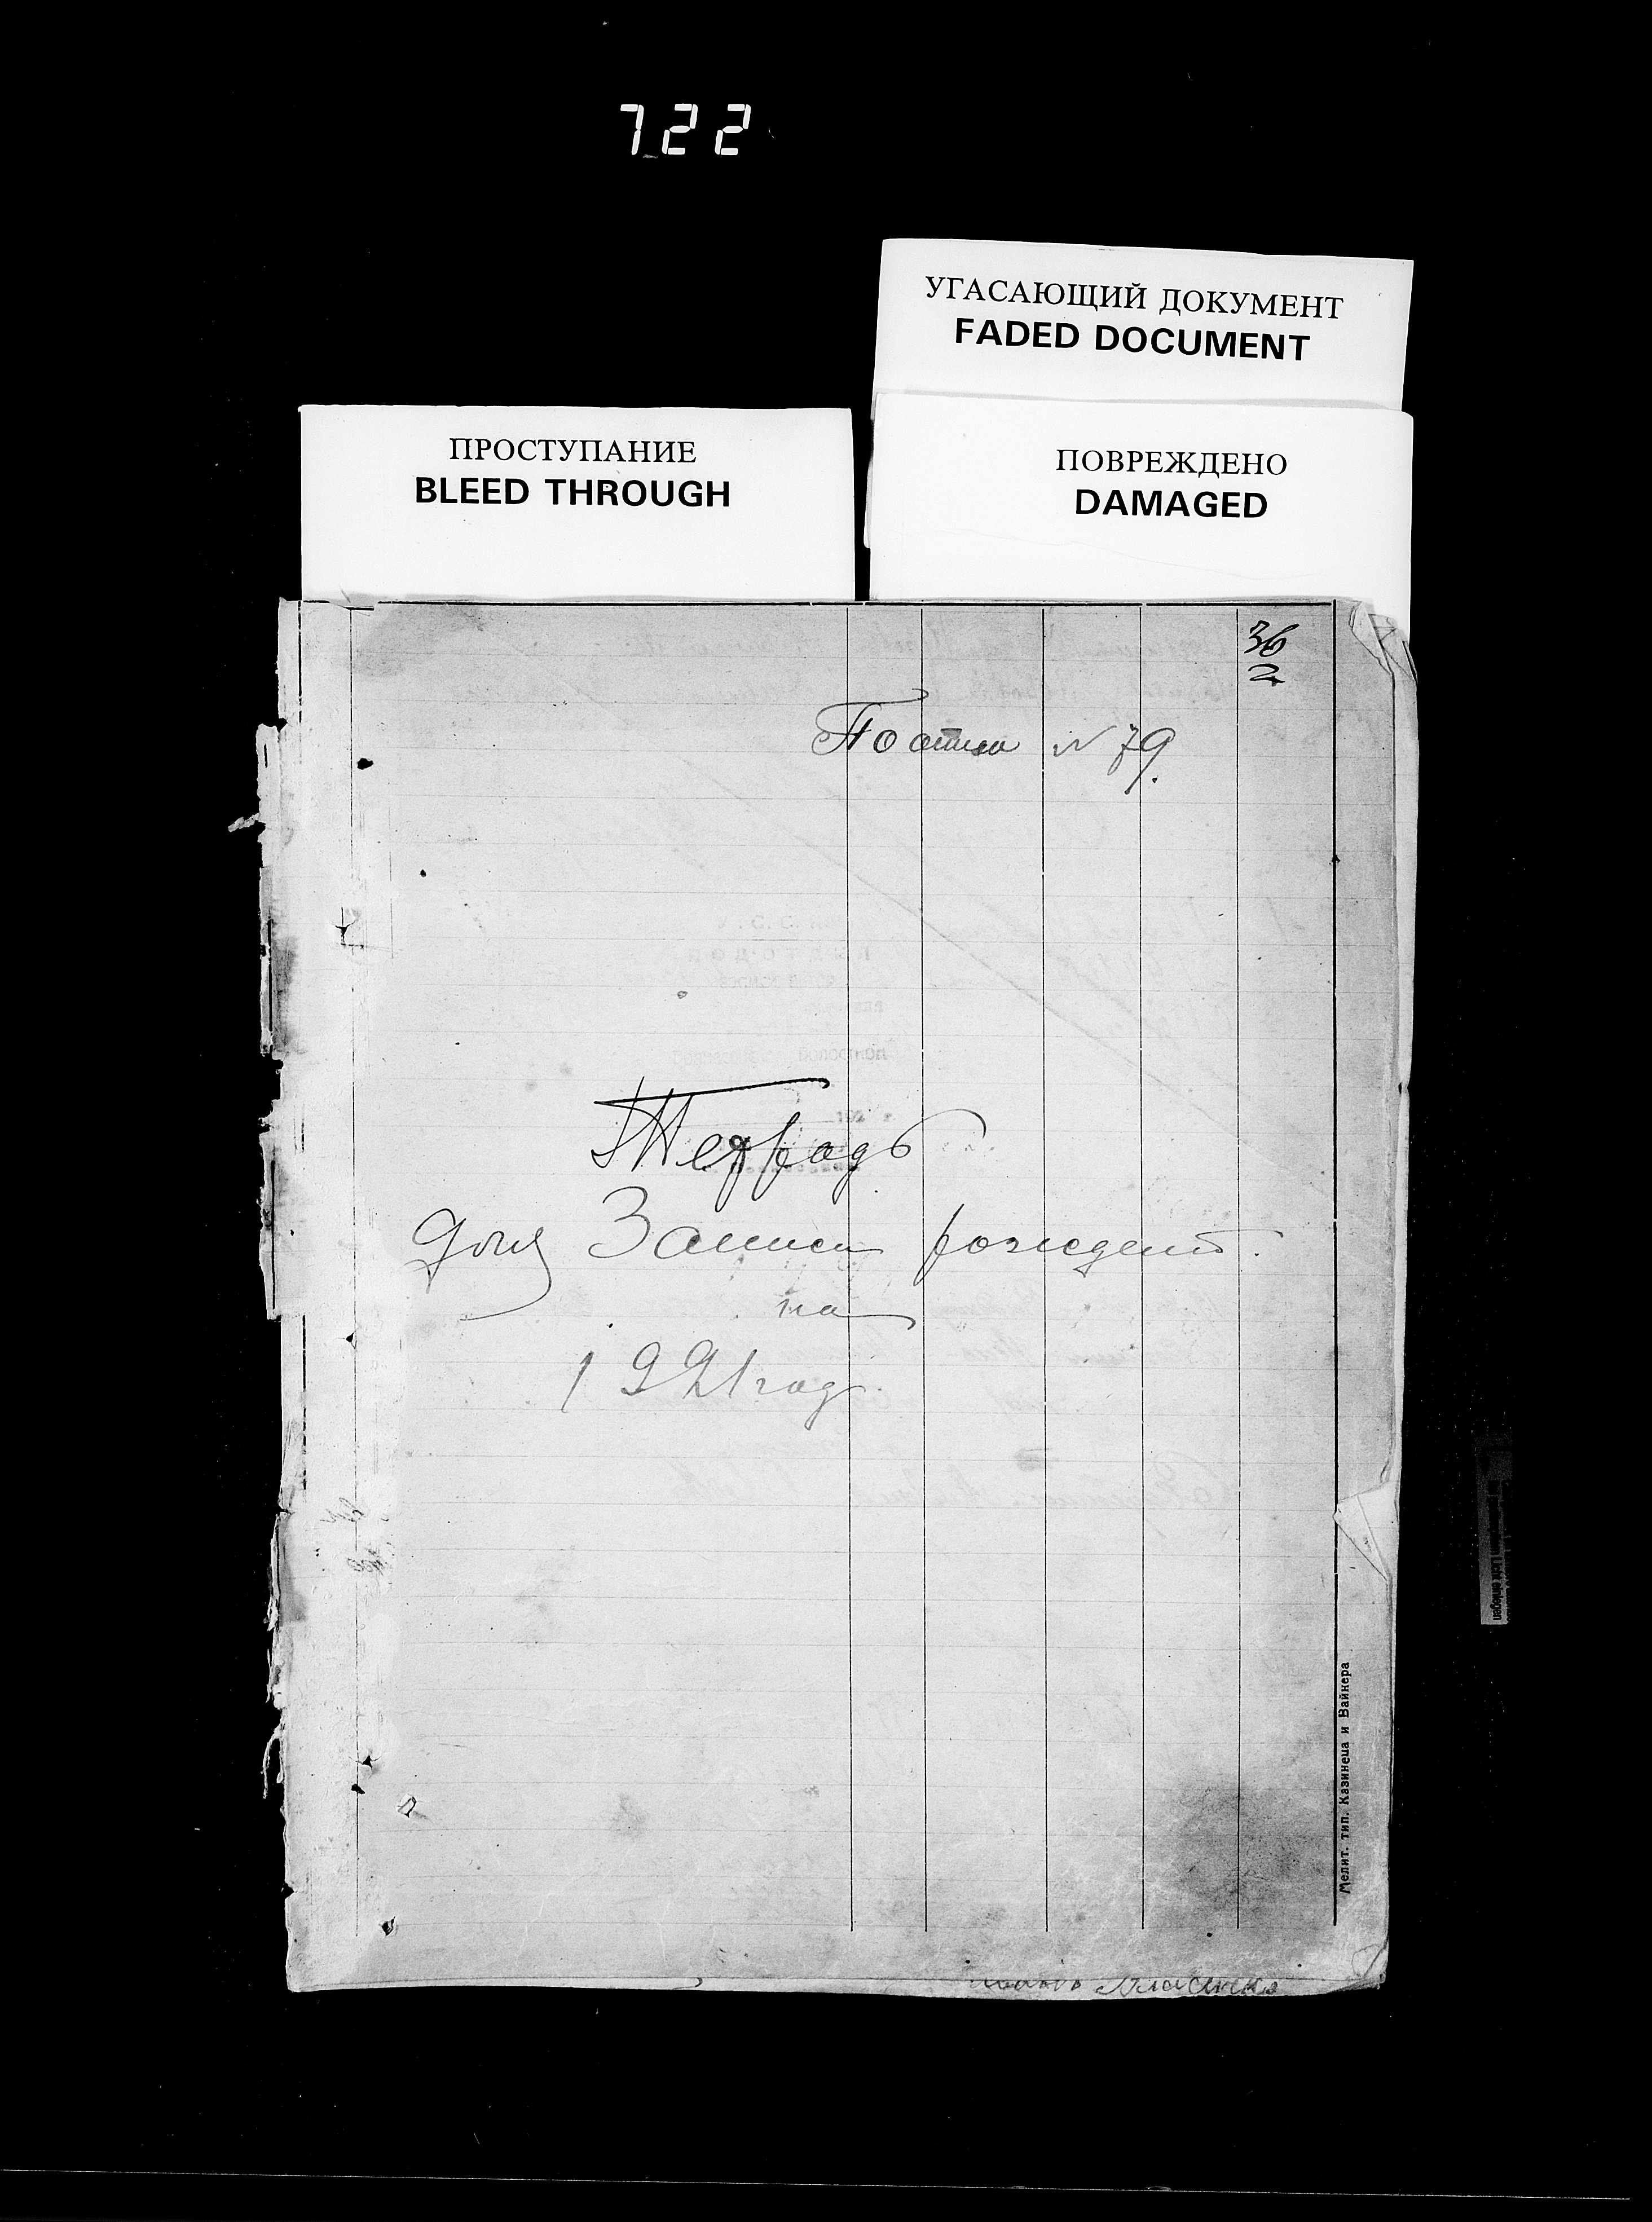 722
УГАСАЮЩИЙ ДОКУМЕНТ
FADED DOCUMENT
ПРОСТУПАНИЕ
BLEED THROUGH
ПОВРЕЖДЕНО
DAMAGED
36
2
N 79.
Тетрадь
для Записи рождений.
на
1921 год.
Мелит. тип. Казинеца и Вайнера